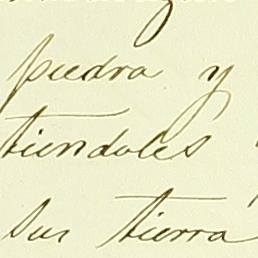 piedra y
tiendoles
sus tierra